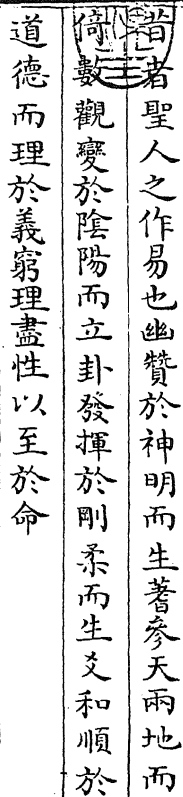 昔者聖人之作易也幽贊於神明而生蓍參天兩地而
倚數觀變於陰陽而立卦發揮於剛柔而生爻和順於
道德而理於義窮理盡性以至於命